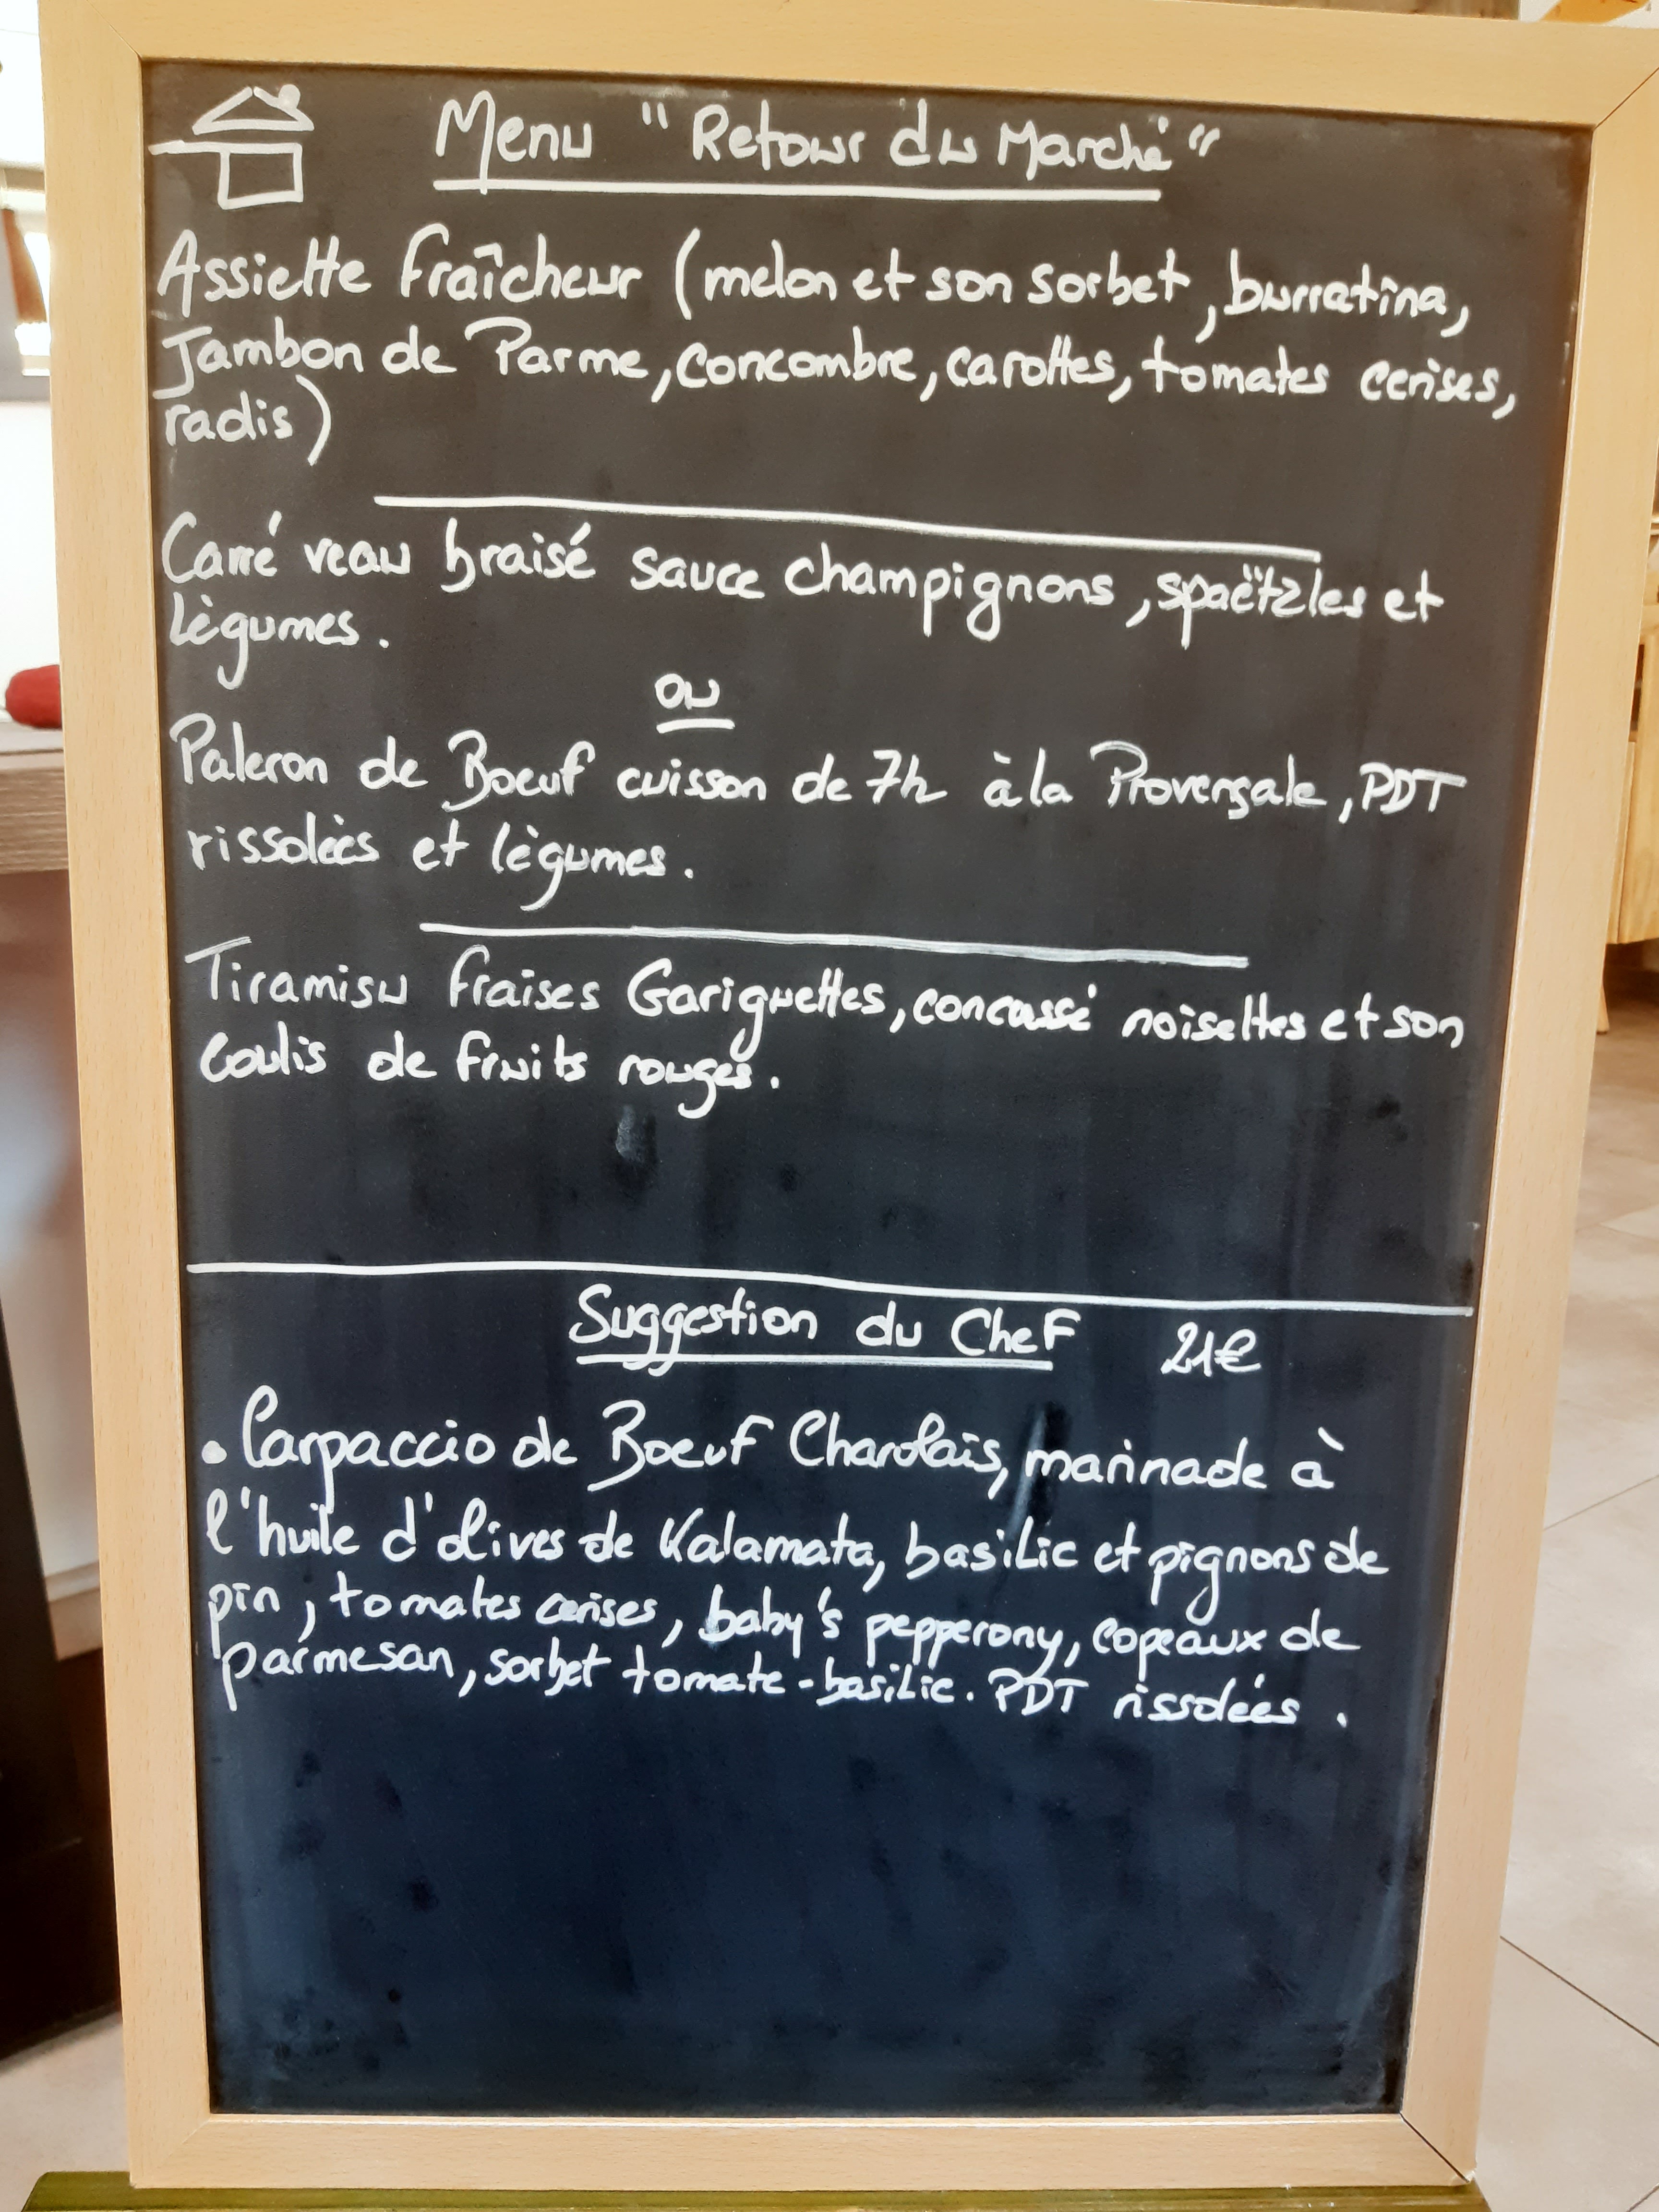 Menu "Retour du Marché"
Assiette fraîcheur (melon et son sorbet, burratina,
Jambon de Parme, concombre, carottes, tomates cerises,
radis)
Carré veau braisé sauce champignons, spaëtzles et
légumes.
ou
Paleron de Boeuf cuisson de 7h à la Provençale, PDT
rissolées et légumes.
Tiramisu fraises Gariguettes, concassé noisettes et son
coulis de fruits rouges.
Suggestion du Chef 21€
• Carpaccio de Boeuf Charolais, marinade à
l'huile d'olives de Kalamata, basilic et pignons de
pin, tomates cerises, baby's pepperony, copeaux de
parmesan, sorbet tomate-basilic. PDT rissolées.